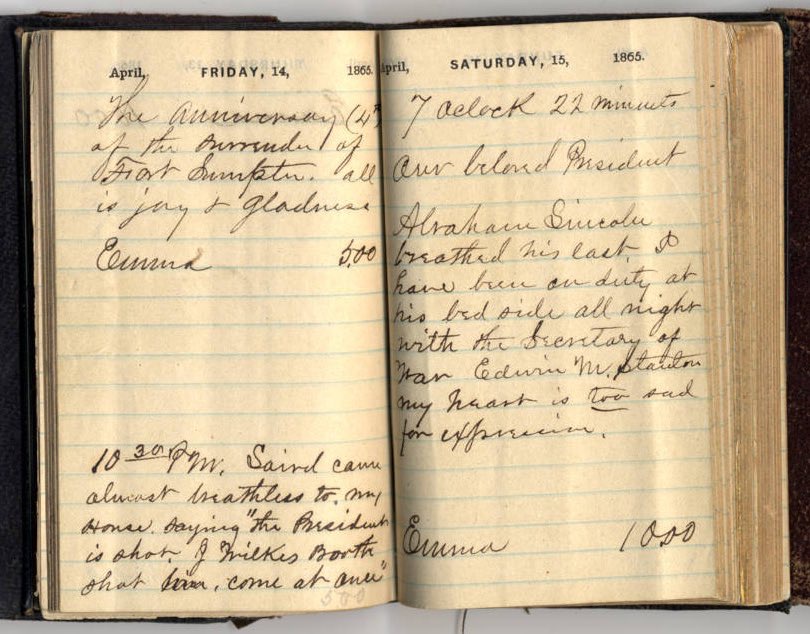 April, FRIDAY, 14, 1865.
The Anniversary (4th
of the surrender of
Fort Sumpter. all
is joy & gladness
Emma 5.00
10 30 P.M. came
almost breathless to my
House. saying "the President
is shot. J Wilkes Booth
shot him, come at once"
500
April, SATURDAY, 15, 1865.
7 oclock 22 minuets
Our beloved President
Abraham Lincoln
breathed his last. I
have been on duty at
his bed side all night
with the Secretary of
War Edwin M. Stanton
my heart is too sad
for expression.
Emma 10.00